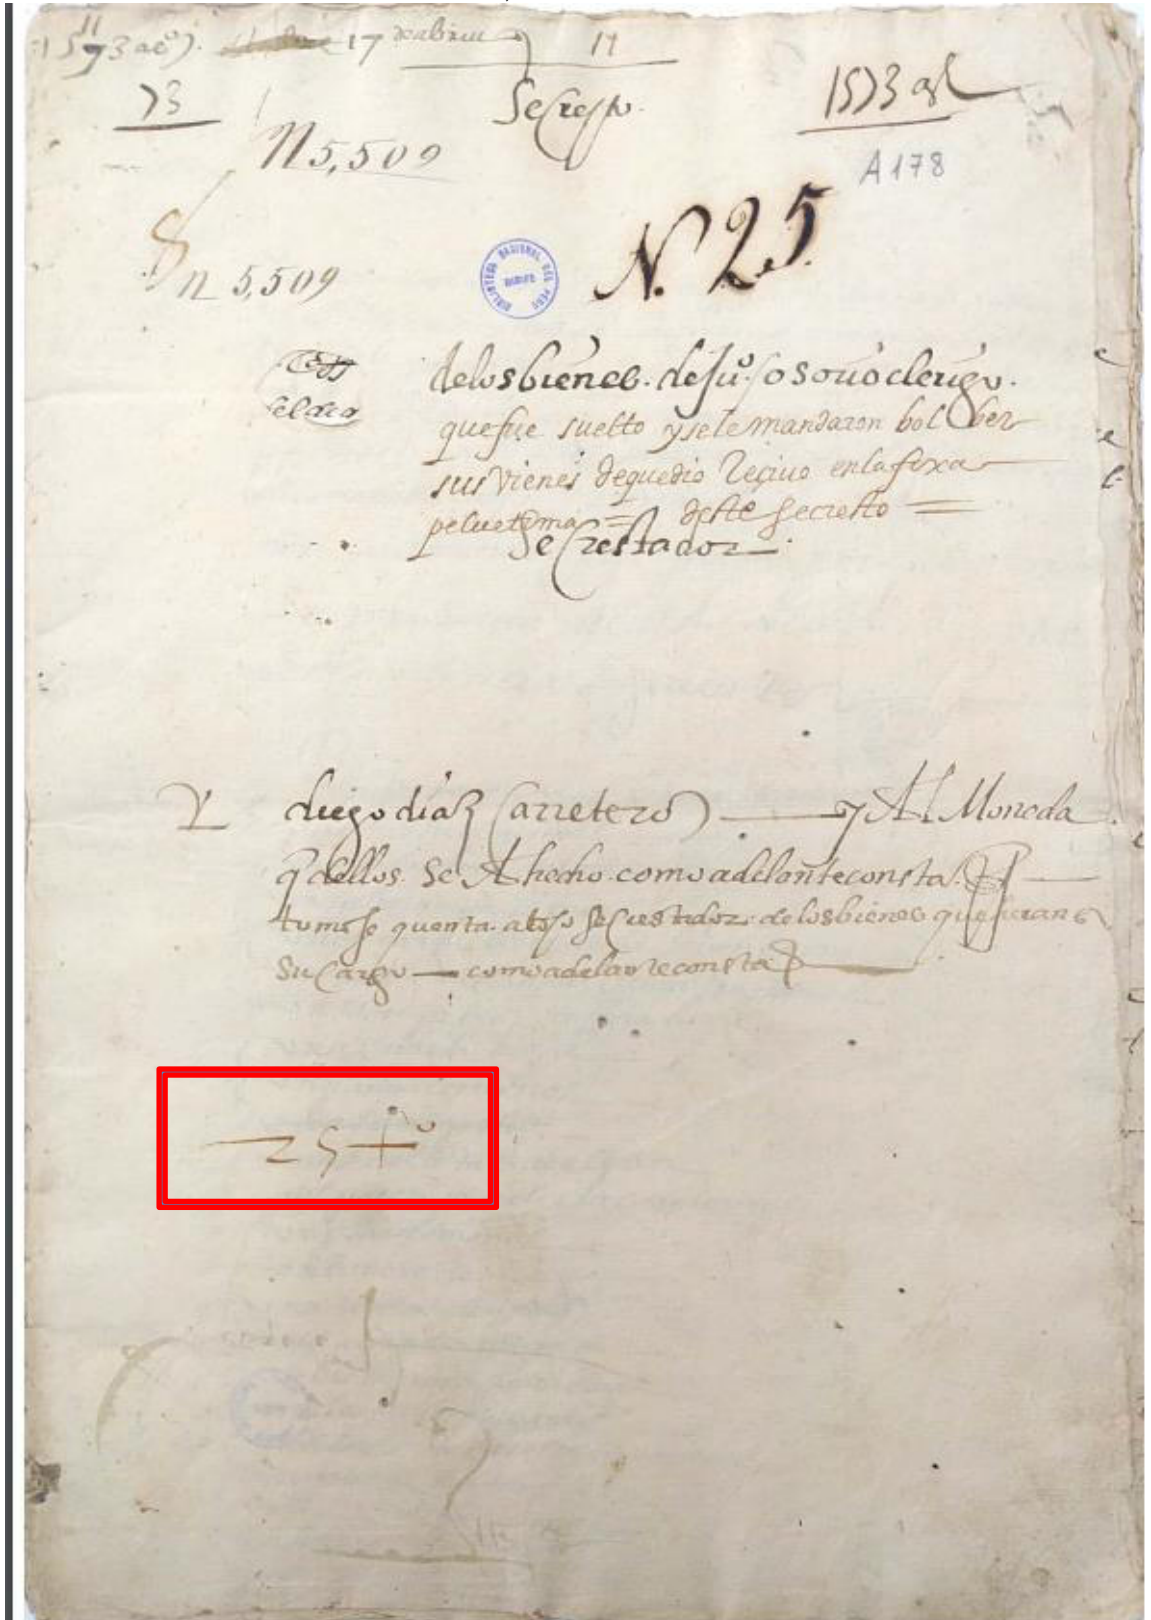 1573 años. 17 de abril 11
73 Secresto. 1573 as
N 5,509 A178
N. 25.
n 5,509
BIBLIOTECA NACIONAL DEL PERU
de los bienes. de Ju.º osorio clerigo.
que fue suelto y se le mandaron bolber
sus vienes de que dio Reçiuo en la foxa
deste secresto =
Secrestador
Y diego diaz Carretero y Al Moneda
q dellos se A hecho como adelante consta.
tomose quenta al dho secrestador de los bienes que fueron a
Su Cargo — como adelante consta